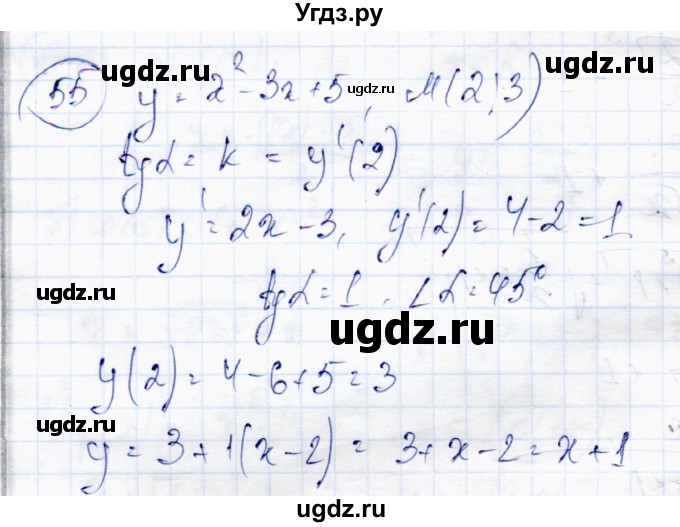 Угдз.ру
55 y = x² - 3x + 5, M(2; 3)
ugdz.ru ugdz.ru ugdz.ru
tgα = k = y'(2)
y' = 2x - 3, y'(2) = 4 - 2 = 1
ugdz.ru
tgα = 1. ∠α = 45°.
ugdz.ru
y(2) = 4 - 6 + 5 = 3
ugdz.ru
y = 3 + 1(x - 2) = 3 + x - 2 = x + 1
ugdz.ru